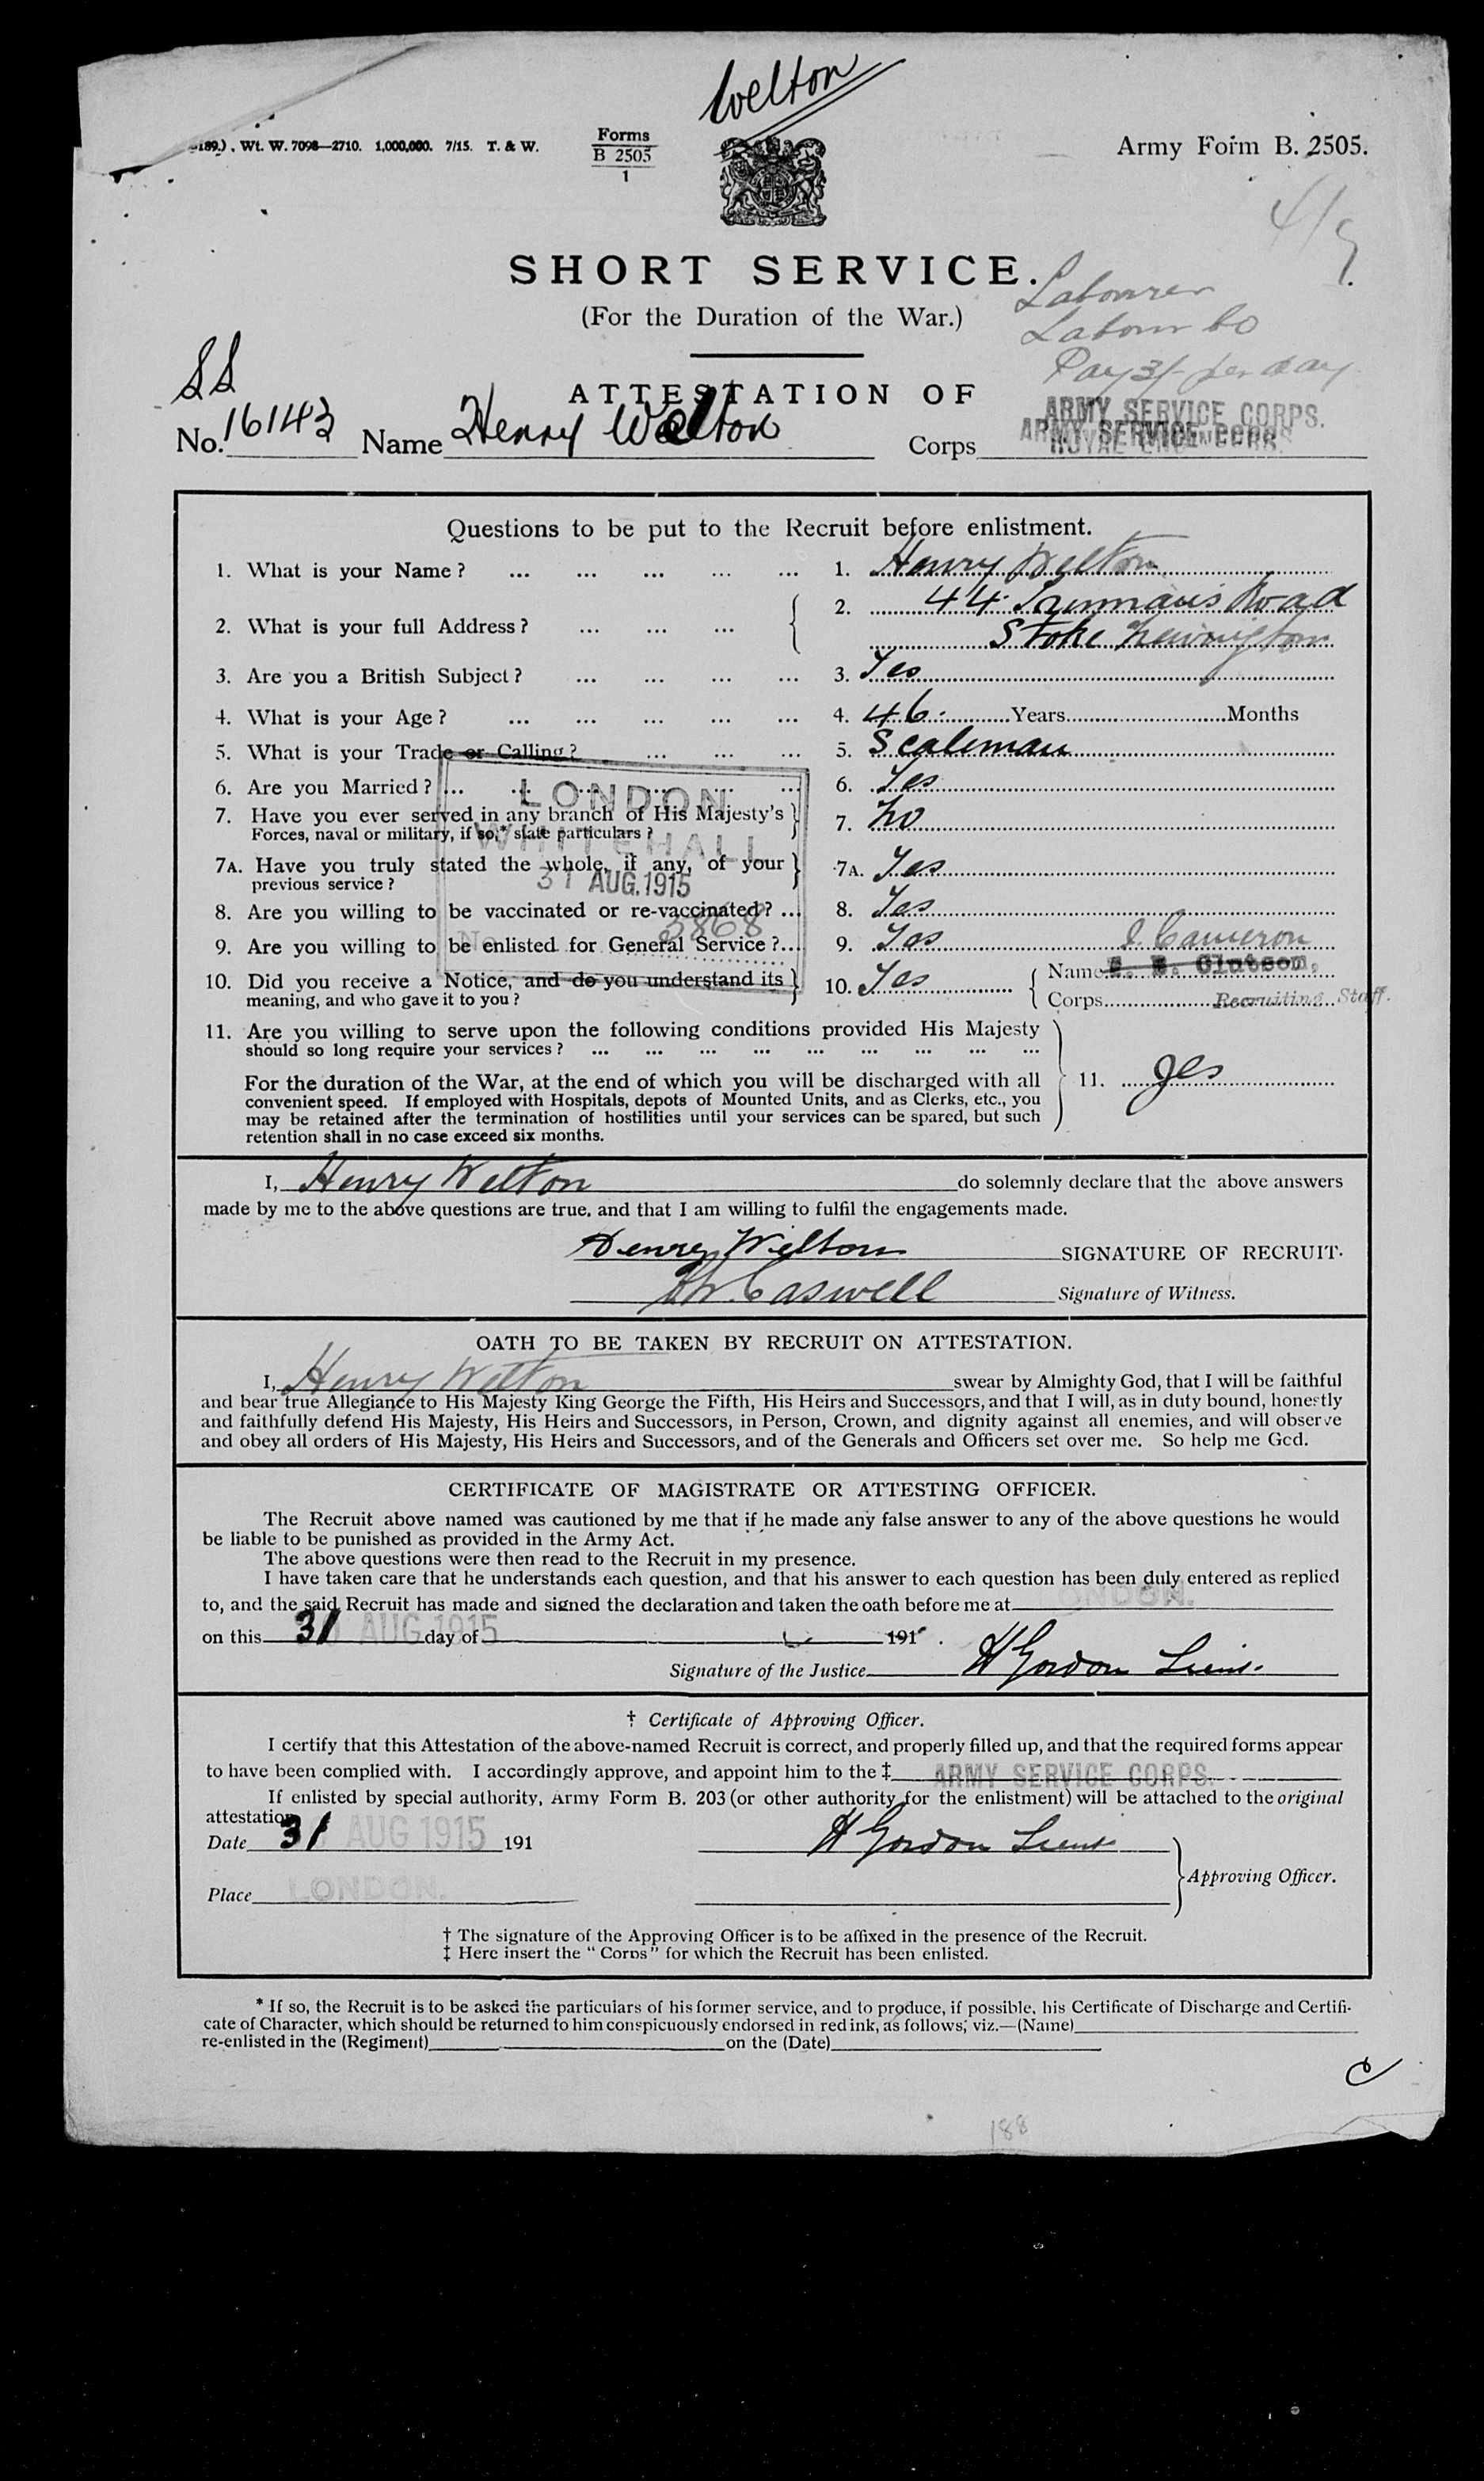 Welton
189.) . Wt. W. 7098—2710. 1,000,000. 7/15. T. & W.
Forms
B 2505
1
Army Form B. 2505.
SHORT SERVICE.
(For the Duration of the War.)
Labourer
Labour Co
Pay 3/- per day
ATTESTATION OF
SS
No. 16143 Name Henry Welton Corps ARMY SERVICE CORPS.
ARMY SERVICE CORPS
Questions to be put to the Recruit before enlistment.
1. What is your Name? ... ... ... ... ... 1. Henry Welton
2. What is your full Address? ... ... ... 2. 44 Truman's Road
Stoke Newington
3. Are you a British Subject? ... ... ... ... 3. Yes
4. What is your Age? ... ... ... ... ... 4. 46 Years Months
5. What is your Trade or Calling? ... ... ... 5. Scaleman
6. Are you Married? ... ... ... ... ... 6. Yes
LONDON
7. Have you ever served in any branch of His Majesty's
Forces, naval or military, if so,* state particulars? 7. No
WHITEHALL
7A. Have you truly stated the whole, if any, of your
previous service? 7A. Yes
31 AUG. 1915
8. Are you willing to be vaccinated or re-vaccinated? ... 8. Yes
No 3868
9. Are you willing to be enlisted for General Service? ... 9. Yes
10. Did you receive a Notice, and do you understand its
meaning, and who gave it to you? 10. Yes
J. Cameron
Name
Corps Recruiting Staff.
11. Are you willing to serve upon the following conditions provided His Majesty
should so long require your services? ... ... ... ... ... ... ... ... ...
For the duration of the War, at the end of which you will be discharged with all
convenient speed. If employed with Hospitals, depots of Mounted Units, and as Clerks, etc., you
may be retained after the termination of hostilities until your services can be spared, but such
retention shall in no case exceed six months.
11. yes
I, Henry Welton do solemnly declare that the above answers
made by me to the above questions are true, and that I am willing to fulfil the engagements made.
Henry Welton SIGNATURE OF RECRUIT.
Caswell Signature of Witness.
OATH TO BE TAKEN BY RECRUIT ON ATTESTATION.
I, Henry Welton swear by Almighty God, that I will be faithful
and bear true Allegiance to His Majesty King George the Fifth, His Heirs and Successors, and that I will, as in duty bound, honestly
and faithfully defend His Majesty, His Heirs and Successors, in Person, Crown, and dignity against all enemies, and will observe
and obey all orders of His Majesty, His Heirs and Successors, and of the Generals and Officers set over me. So help me God.
CERTIFICATE OF MAGISTRATE OR ATTESTING OFFICER.
The Recruit above named was cautioned by me that if he made any false answer to any of the above questions he would
be liable to be punished as provided in the Army Act.
The above questions were then read to the Recruit in my presence.
I have taken care that he understands each question, and that his answer to each question has been duly entered as replied
to, and the said Recruit has made and signed the declaration and taken the oath before me at LONDON.
on this 31 AUG 1915 day of 191 .
Signature of the Justice H Gordon Lieut.
† Certificate of Approving Officer.
I certify that this Attestation of the above-named Recruit is correct, and properly filled up, and that the required forms appear
to have been complied with. I accordingly approve, and appoint him to the ‡ ARMY SERVICE CORPS.
If enlisted by special authority, Army Form B. 203 (or other authority for the enlistment) will be attached to the original
attestation
Date 31 AUG 1915 191
H Gordon Lieut
Approving Officer.
Place LONDON.
† The signature of the Approving Officer is to be affixed in the presence of the Recruit.
‡ Here insert the "Corps" for which the Recruit has been enlisted.
* If so, the Recruit is to be asked the particulars of his former service, and to produce, if possible, his Certificate of Discharge and Certifi-
cate of Character, which should be returned to him conspicuously endorsed in red ink, as follows, viz.—(Name)
re-enlisted in the (Regiment) on the (Date)
188